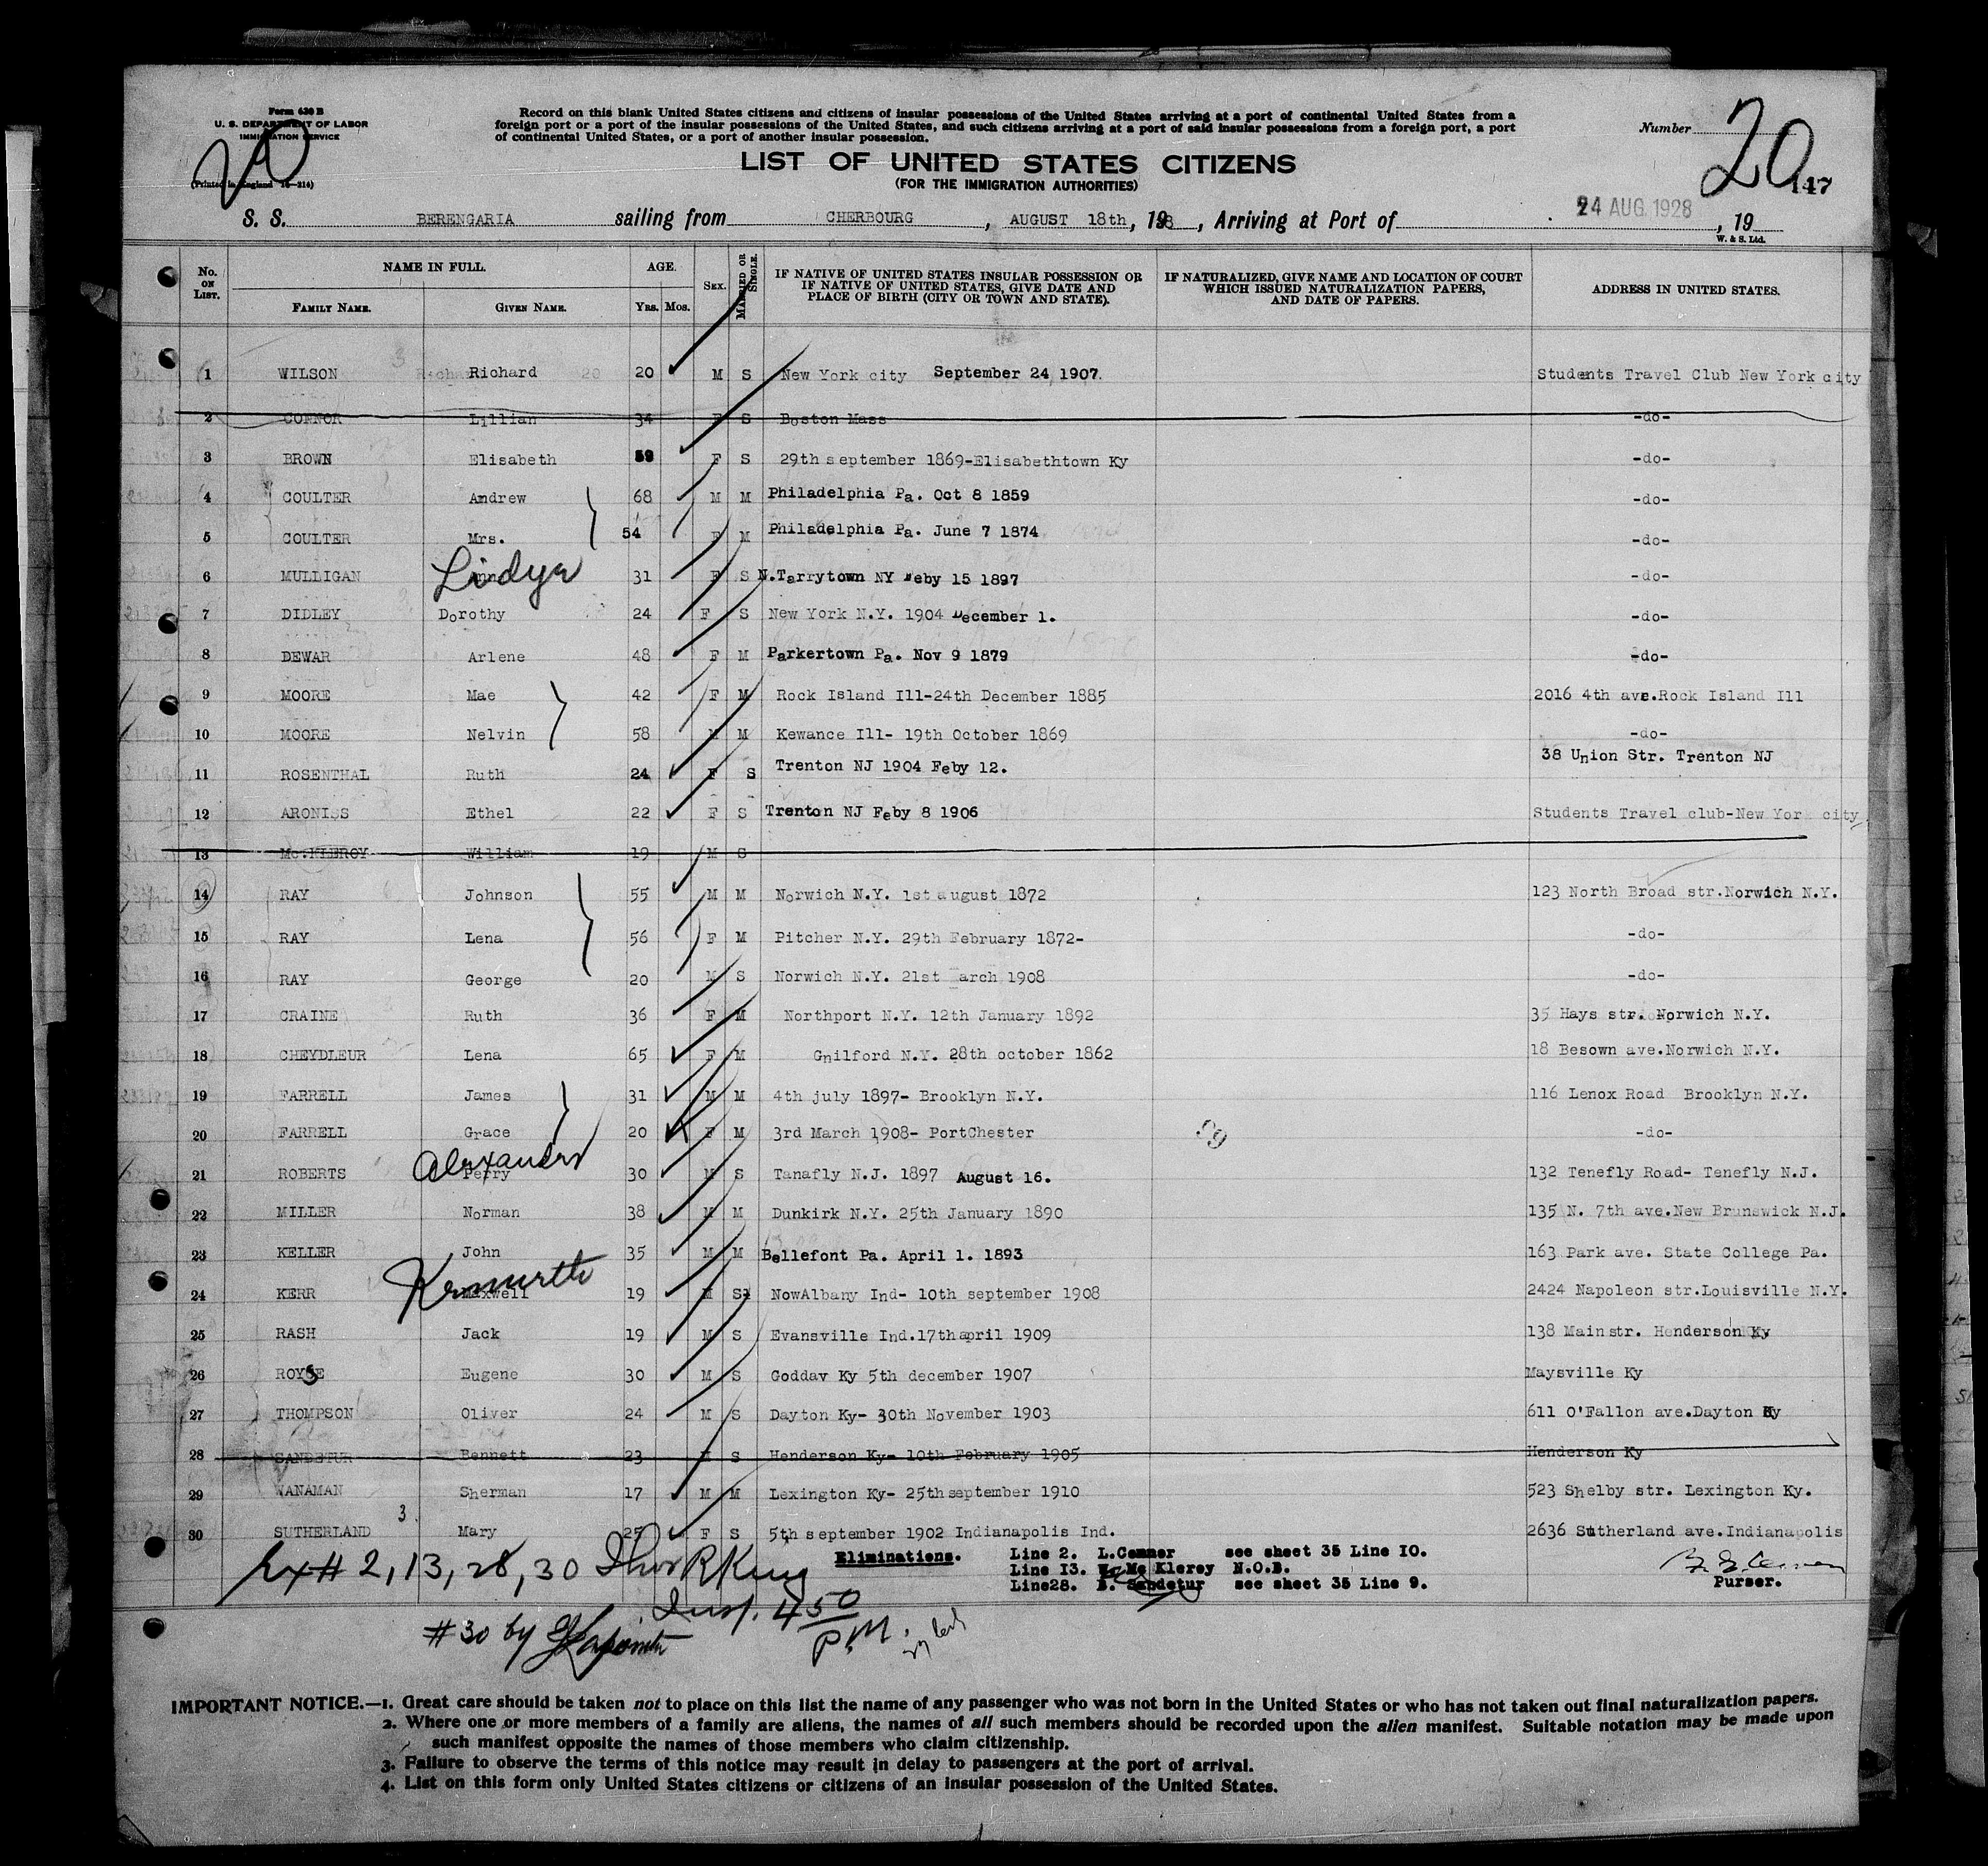 Form 630 B
U. S. DEPARTMENT OF LABOR
IMMIGRATION SERVICE
(Printed in England 16—214)
20
Record on this blank United States citizens and citizens of insular possessions of the United States arriving at a port of continental United States from a
foreign port or a port of the insular possessions of the United States, and such citizens arriving at a port of said insular possessions from a foreign port, a port
of continental United States, or a port of another insular possession.
Number 20
147
LIST OF UNITED STATES CITIZENS
(FOR THE IMMIGRATION AUTHORITIES)
S. S. BERENGARIA sailing from CHERBOURG , AUGUST 18th, 1928 , Arriving at Port of 24 AUG. 1928 , 19
W. & S. Ltd.
No. ON LIST. NAME IN FULL. FAMILY NAME. GIVEN NAME. AGE. YRS. MOS. SEX. MARRIED OR SINGLE. IF NATIVE OF UNITED STATES INSULAR POSSESSION OR IF NATIVE OF UNITED STATES, GIVE DATE AND PLACE OF BIRTH (CITY OR TOWN AND STATE). IF NATURALIZED, GIVE NAME AND LOCATION OF COURT WHICH ISSUED NATURALIZATION PAPERS, AND DATE OF PAPERS. ADDRESS IN UNITED STATES.
1 WILSON Richard 20 M S New York city September 24 1907. Students Travel Club New York city
2 CONNOR Lillian 34 F S Boston Mass -do-
3 BROWN Elisabeth 59 F S 29th september 1869-Elisabethtown Ky -do-
4 COULTER Andrew 68 M M Philadelphia Pa. Oct 8 1859 -do-
5 COULTER Mrs. 54 F M Philadelphia Pa. June 7 1874 -do-
6 MULLIGAN Lindya 31 F S N.Tarrytown NY Feby 15 1897 -do-
7 DIDLEY Dorothy 24 F S New York N.Y. 1904 December 1. -do-
8 DEWAR Arlene 48 F M Parkertown Pa. Nov 9 1879 -do-
9 MOORE Mae 42 F M Rock Island Ill-24th December 1885 2016 4th ave.Rock Island Ill
10 MOORE Nelvin 58 M M Kewance Ill- 19th October 1869 -do-
11 ROSENTHAL Ruth 24 F S Trenton NJ 1904 Feby 12. 38 Union Str. Trenton NJ
12 ARONISS Ethel 22 F S Trenton NJ Feby 8 1906 Students Travel club-New York city
13 Mc.KLEROY William 19 M S
14 RAY Johnson 55 M M Norwich N.Y. 1st august 1872 123 North Broad str.Norwich N.Y.
15 RAY Lena 56 F M Pitcher N.Y. 29th February 1872- -do-
16 RAY George 20 M S Norwich N.Y. 21st arch 1908 -do-
17 CRAINE Ruth 36 F M Northport N.Y. 12th January 1892 35 Hays str. Norwich N.Y.
18 CHEYDLEUR Lena 65 F M Gnilford N.Y. 28th october 1862 18 Besown ave.Norwich N.Y.
19 FARRELL James 31 M M 4th july 1897- Brooklyn N.Y. 116 Lenox Road Brooklyn N.Y.
20 FARRELL Grace 20 F M 3rd March 1908- PortChester -do-
21 ROBERTS Alexander Perry 30 M S Tanafly N.J. 1897 August 16. 132 Tenefly Road- Tenefly N.J.
22 MILLER Norman 38 M M Dunkirk N.Y. 25th January 1890 135 N. 7th ave.New Brunswick N.J.
23 KELLER John 35 M M Bellefont Pa. April 1. 1893 163 Park ave. State College Pa.
24 KERR Kennneth Maxwell 19 M S NowAlbany Ind- 10th september 1908 2424 Napoleon str.Louisville N.Y.
25 RASH Jack 19 M S Evansville Ind.17th april 1909 138 Main str. Henderson Ky
26 ROYSE Eugene 30 M S Goddav Ky 5th december 1907 Maysville Ky
27 THOMPSON Oliver 24 M S Dayton Ky- 30th November 1903 611 O'Fallon ave.Dayton Ky
28 SANDETUR Bennett 23 M S Henderson Ky- 10th February 1905 Henderson Ky
29 WANAMAN Sherman 17 M M Lexington Ky- 25th september 1910 523 Shelby str. Lexington Ky.
30 SUTHERLAND 3 Mary 25 F S 5th september 1902 Indianapolis Ind. 2636 Sutherland ave.Indianapolis
Ex # 2, 13, 28, 30 R King
Insp. 4 50 P.M.
# 30 by
Eliminations.
Line 2. L.Connor see sheet 35 Line 10.
Line 13. W. Mc Klerey N.O.B.
Line28. B. Sandetur see sheet 35 Line 9.
Purser.
IMPORTANT NOTICE.—1. Great care should be taken not to place on this list the name of any passenger who was not born in the United States or who has not taken out final naturalization papers.
2. Where one or more members of a family are aliens, the names of all such members should be recorded upon the alien manifest. Suitable notation may be made upon
such manifest opposite the names of those members who claim citizenship.
3. Failure to observe the terms of this notice may result in delay to passengers at the port of arrival.
4. List on this form only United States citizens or citizens of an insular possession of the United States.